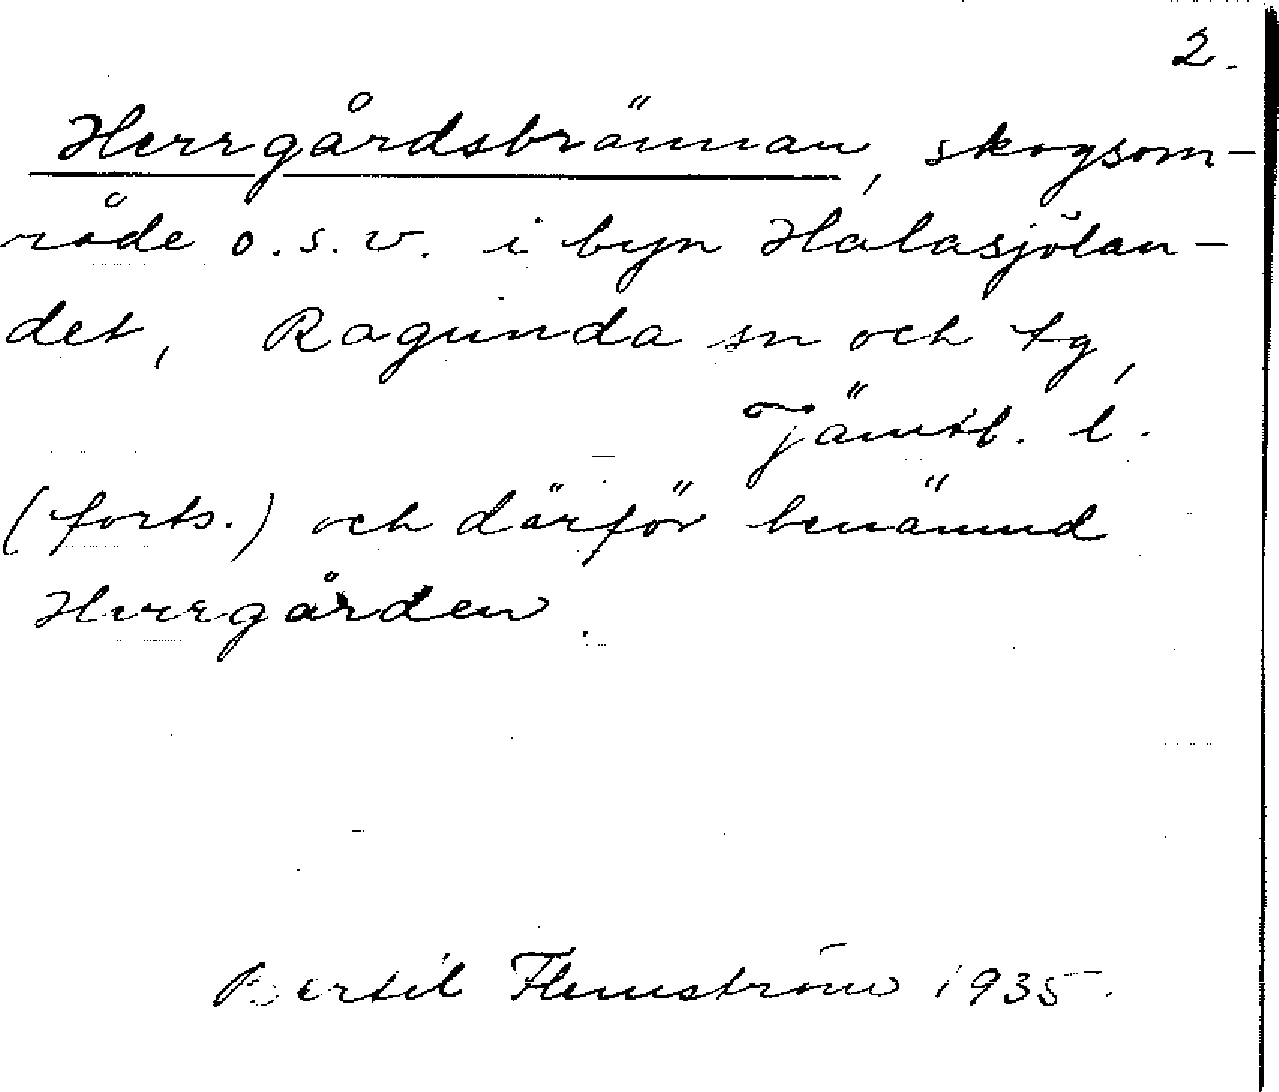 2.
Herrgårdsbrännan, skogsom-
råde o.s.v. i byn Halasjölan-
det, Ragunda sn och tg,
Jämtl. l.
(forts.) och därför benämnd
Herrgården.
Bertil Flemström 1935.